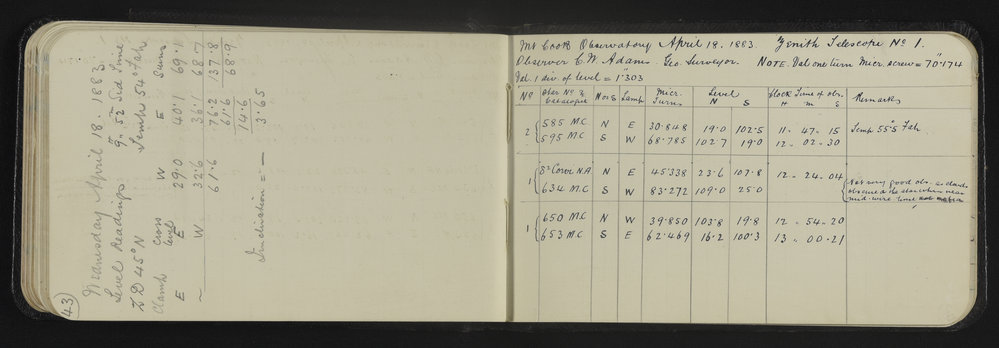 43
Wednesday April 18. 1883.
Level Readings. 9h 52m Sid Time
Z D 45° N Temp 54° Fah
Clamp Cross level W E Sums
E E 29.0 40.1 69.1
~ W 32.6 36.1 68.7
61.6 76.2 137.8
61.6 68.9
14.6
3.65
Inclination = —
Mt Cook Observatory April 18. 1883. Zenith Telescope No 1.
Observer C. W. Adams. Geo. Surveyor. NOTE. Val one turn Micr. screw = 70".174
Val. 1 div of level = 1".303
No Star No & Catalogue N or S Lamp Micr. Turns Level N S Clock Time of obs. H m S Remarks
2 { 585 M.C N E 30.848 19.0 102.5 11 - 47 - 15 Temp. 55°.5 Fah
595 M.C S W 68.785 102.7 19.0 12 - 02 - 30
1 { δ² Corvi N.A N E 45.338 23.6 107.8 12 - 24 - 04
634 M.C S W 83.272 109.0 25.0 { Not very good obs. as clouds
obscured the star when near
mid-wire time
1 { 650 M.C N W 39.850 103.8 19.8 12 - 54 - 20
653 M.C S E 62.469 16.2 100.3 13 - 00 - 21